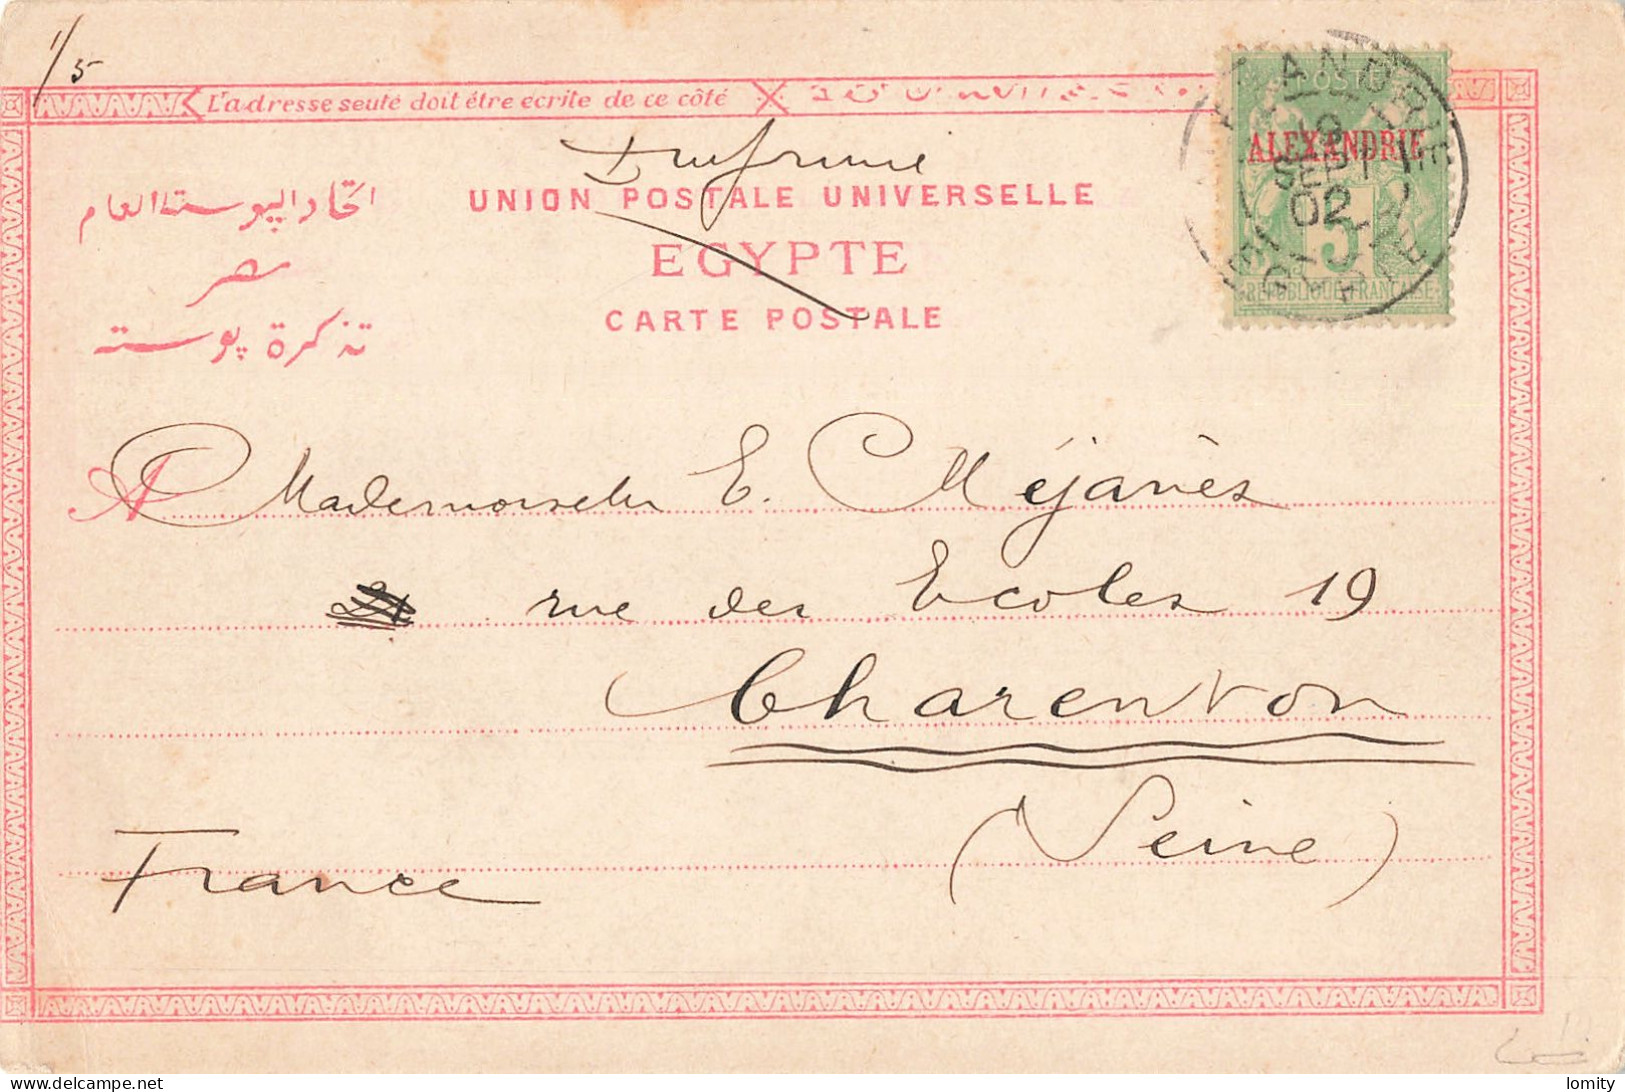 1/5
L'adresse seule doit être écrite de ce côté
Imprimé
UNION POSTALE UNIVERSELLE
EGYPTE
CARTE POSTALE
اتحاد البوستة العام
مصر
تذكرة بوستة
POSTE
ALEXANDRIE
5
REPUBLIQUE FRANCAISE
ALEXANDRIE
SEPT
02
A Mademoiselle E. Méjanès
rue des Ecoles 19
Charenton
(Seine)
France
delcampe.net
lomity